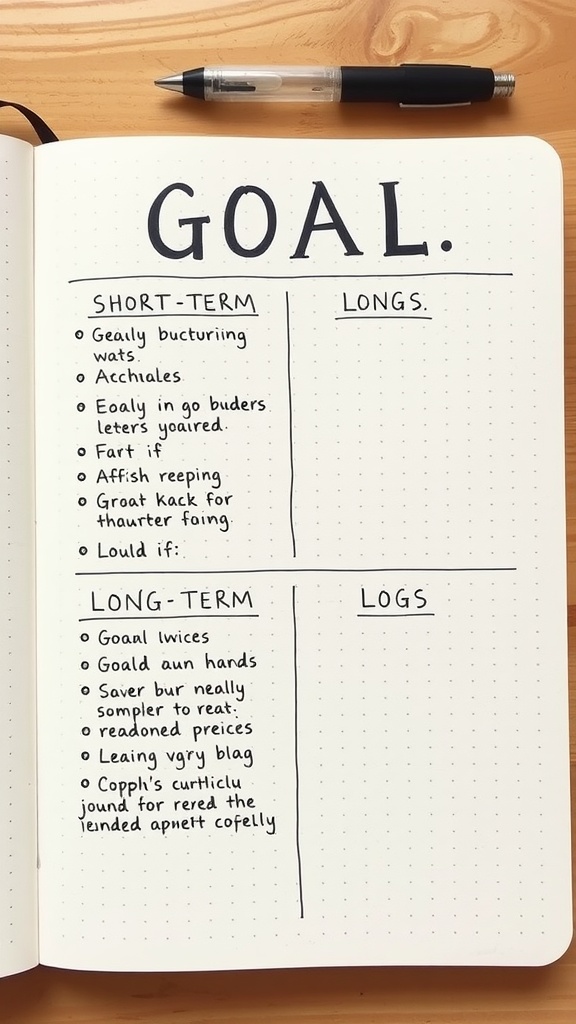 GOAL.
SHORT-TERM
Geaily bucturiing
wats.
Acchiales
Eoaly in go buders
leters yoaired.
Fart if
Affish reeping
Groat Kack for
thaurter foing.
Lould if:
LONGS.
LONG-TERM
Goaal lwices
Goald aun hands
Saver bur neally
sompler to reat.
readoned preices
Leaing vgry blag
Copph's curtliclu
jound for rered the
leinded apnett cofelly
LOGS